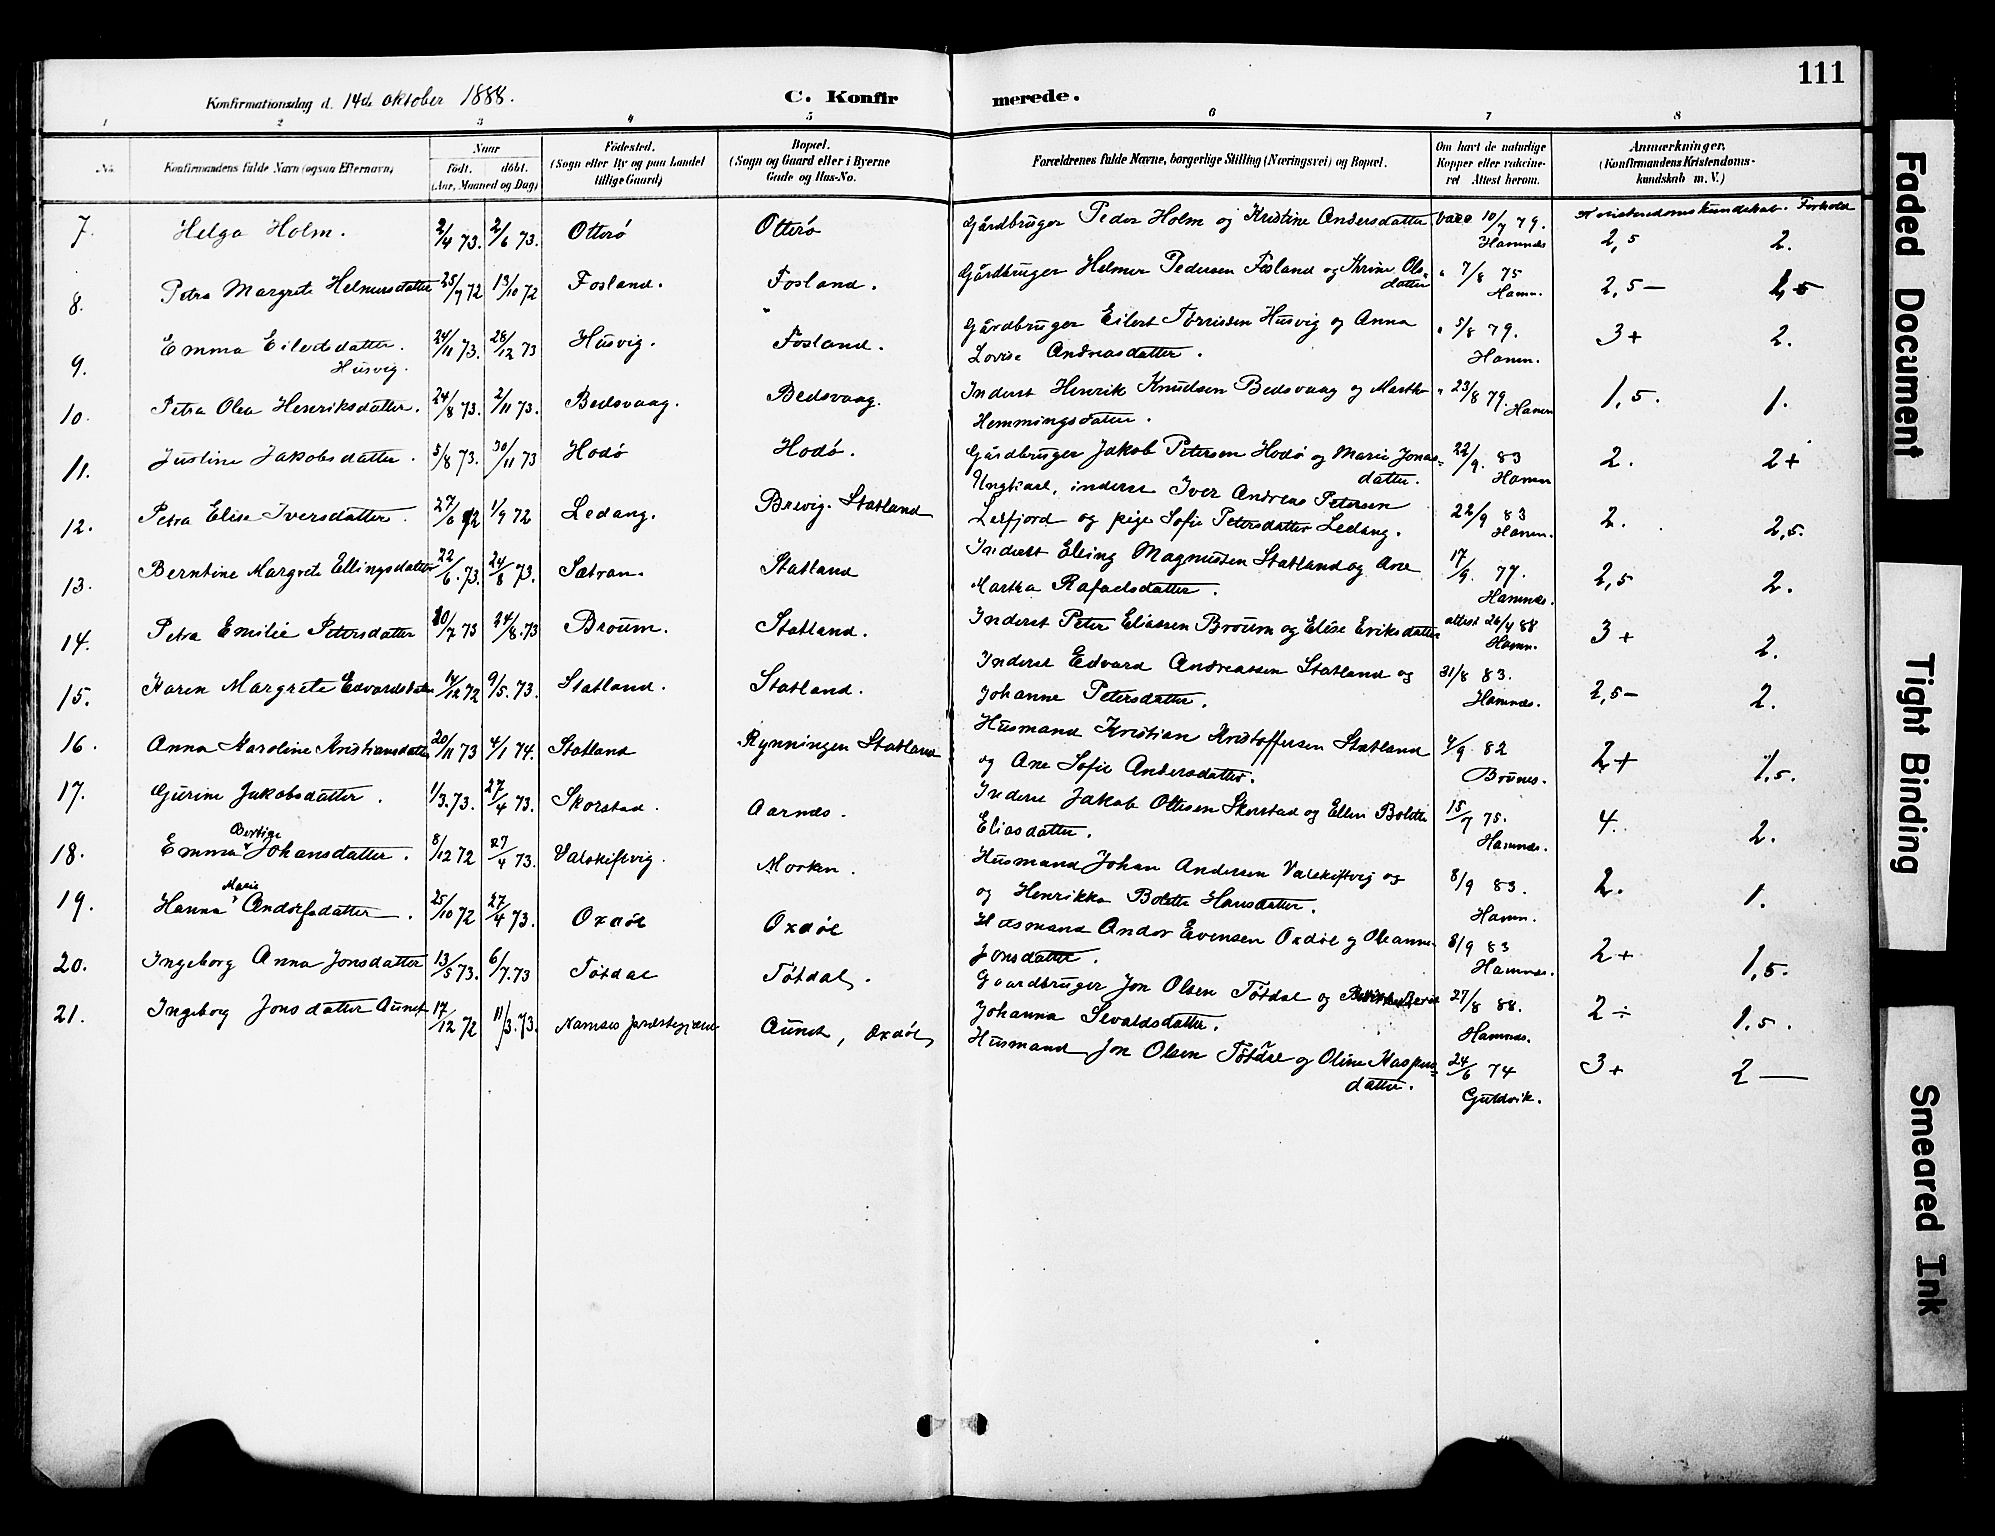 111
Konfirmationsdag d. 14de oktober 1888.
C. Konfirmerede.
1 2 3 4 5 6 7 8
No.
Konfirmandens fulde Navn (ogsaa Efternavn)
Naar
født. døbt.
(Aar, Maaned og Dag)
Fødested.
(Sogn eller By og paa Landet
tillige Gaard)
Bopæl.
(Sogn og Gaard eller i Byerne
Gade og Hus-No.
Forældrenes fulde Navne, borgerlige Stilling (Næringsvei) og Bopæl.
Om havt de naturlige
Kopper eller vakcine-
ret Attest herom.
Anmærkninger.
(Konfirmandens Kristendoms-
kundskab m. V.)
Kristendomskundskab. Forhold
7. Helga Holm. 2/4 73. 2/6 73. Otterö Otterö Gårdbruger Peder Holm og Kristine Andersdatter vacc 10/7 79. Hamnes 2,5 2.
8. Petra Margrete Helmersdatter 25/7 72 13/10 72 Fosland. Fosland. Gårdbruger Helmer Pedersen Fosland og Trine Ols=
datter " 7/8 75 Hamn. 2,5– 1,5
9. Emma Eilertsdatter. 24/11 73. 28/12 73 Husvig. Fosland. Gårdbruger Eilert Torrissen Husvig og Anna
Husvig. Lovise Andreasdatter. " 5/8 79. Hamn. 3+ 2.
10. Petra Olea Henriksdatter. 24/8 73. 2/11 73. Bedsvaag. Bedsvaag. Inderst Henrik Knudsen Bedsvaag og Martha
Hemmingsdatter. " 23/8 79. Hamn 1,5. 1.
11. Justine Jakobsdatter. 5/8 73. 30/11 73 Hodö Hodö. Gårdbruger Jakob Petersen Hodö og Marie Jonas=
datter. 22/9. 83 Hamn 2. 2+
12. Petra Elise Iversdatter. 27/6 72 1/9 72 Ledang. Brevig. Statland Ungkarl, inderst Iver Andreas Petersen
Lerfjord og pige Sofie Petersdatter Ledang. 22/9 83 Hamn. 2. 2,5.
13. Berntine Margrete Ellingsdatter 22/6. 73. 24/8 73. Sætran. Statland Inderst Elling Magnussen Statland og Ane
Martha Rafaelsdatter. 17/9. 77. Hamnes. 2,5 2.
14. Petra Emilie Petersdatter 20/7 73 24/8. 73 Broum. Statland. Inderst Peter Eliassen Broum og Elise Eriksdatter attest 26/4 88 Hamn. 3+ 2.
15. Karen Margrete Edvardsdatter 14/12 72 9/5. 73. Statland. Statland. Inderst Edvard Andreassen Statland og
Johanne Petersdatter. 31/8 83. Hamnes. 2,5– 2.
16. Anna Karoline Kristiansdatter 20/11 73 4/1 74. Statland Rynningen Statland Husmand Kristian Kristoffersen Statland
og Ane Sofie Andersdatter. 4/9. 82 Brunes. 2+ 1,5.
17. Gurine Jakobsdatter. 1/3. 73. 27/4 73. Skorstad. Aarnes. Inderst Jakob Ottesen Skorstad og Ellen Bolette
Eliasdatter. 15/7 75. Hamnes. 4. 2.
18. Emma Bertine Johansdatter. 8/12 72 27/4 73. Valskiftvig. Morken. Husmand Johan Andersen Valskiftvig og
og Henrikka Bolette Hansdatter. 8/9 83. Hamn. 2. 1.
19. Hanna Marie Andorsdatter. 25/10 72 27/4 73. Oxdöl Oxdöl Husmand Andor Evensen Oxdöl og Oleanna
Jonsdatter. 8/9 83 Hamnes. 2+ 1,5.
20. Ingeborg Anna Jonsdatter 13/5 73. 6/7. 73 Tötdal Tötdal. Gaardbruger Jon Olsen Tötdal og Beret
Johanna Sevaldsdatter. 27/8 88. Hamnes. 2÷ 1,5.
21. Ingeborg Jonsdatter Aunet 17/12 72 11/3. 73. Namsos Aunet, Oxdöl Husmand Jon Olsen Tötdal og Oline Kaspers=
datter. 24/6 74 Gutvik. 3+ 2 –
Faded Document
Tight Binding
Smeared Ink